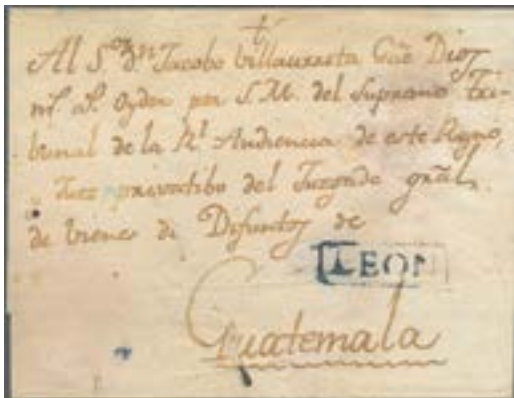 †
Al S.or D.n Jacobo Villaurrutia Gũe Dios
m.s a.s Oydor por S.M. del Supremo Tri-
bunal de la R.l Audiencia de este Reyno,
Juez privatibo del Juzgado gral.
de bienes de Difuntos de
LEON
Guatemala